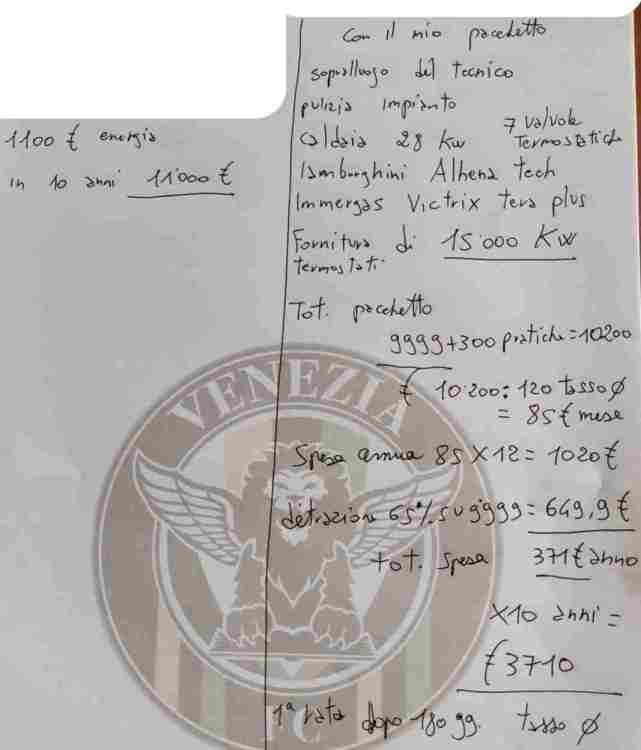 1100 € energia
in 10 anni 11'000 €
Con il mio pacchetto
sopralluogo del tecnico
pulizia impianto
Caldaia 28 Kw 7 valvole Termostatiche
Lamborghini Alhena tech
Immergas Victrix tera plus
Fornitura di 15'000 Kw
termostati
Tot. pacchetto
9999+300 pratiche=10200
€ 10.200: 120 tasso Ø
= 85 € mese
Spesa annua 85 X 12 = 1020 €
detrazione 65% su 9999 = 649,9 €
tot. Spesa 371 € anno
X10 anni =
€ 3710
1ª rata dopo 180 gg. tasso Ø
VENEZIA
FC